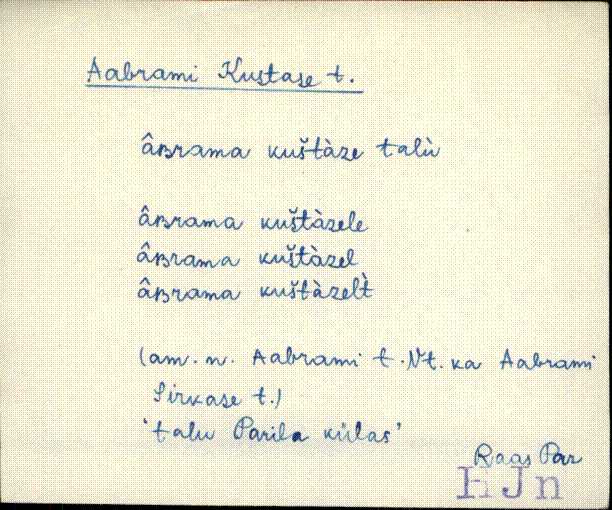 Aabrami Kustase t.
âʙrama kuštàze talù
âʙrama kuštàzele
âʙrama kuštàzel
âʙrama kuštàzelt̀
(am. n. Aabrami t. Vt. ka Aabrami
Sirkase t.)
'talu Parila külas'
Raas Par
HJn